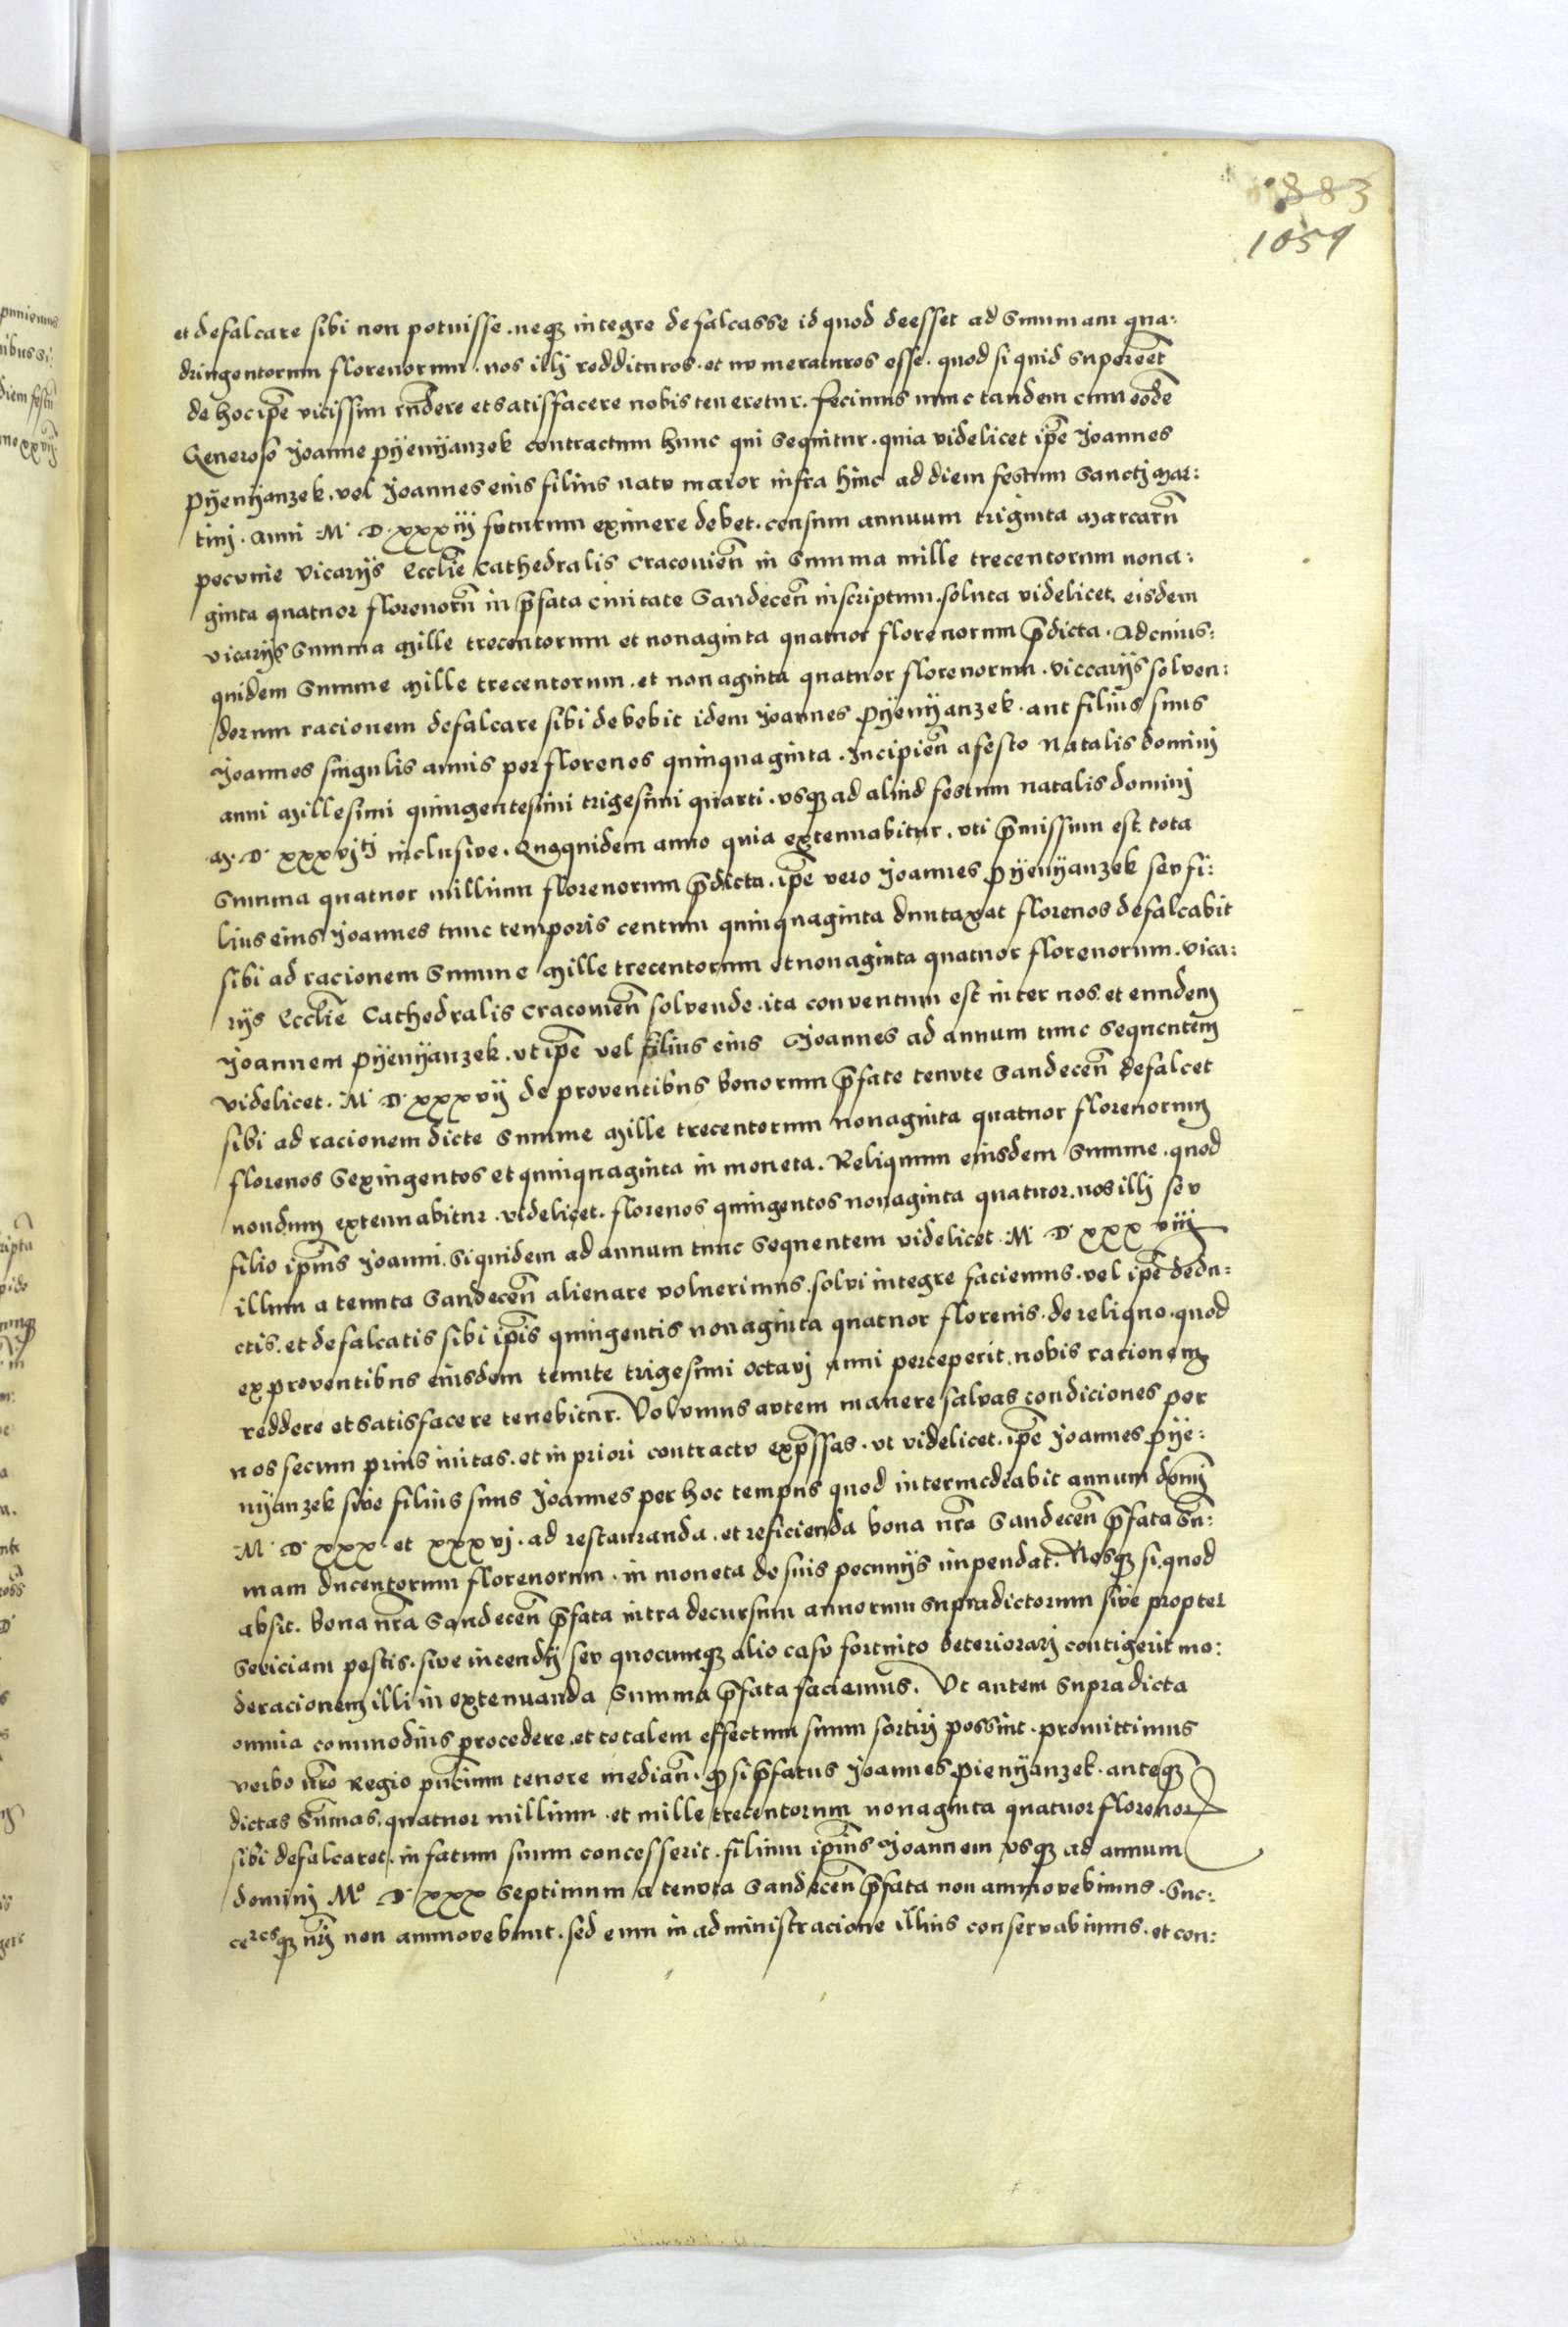 883
1059
et defalcare sibi non potuisse. neqꝫ integre defalcasse id quod deesset ad Summam qua:
dringentorum florenorum. nos illj reddituros. et nvmeraturos esse. quod si quid superēēt
de hoc ip̄e vicissim rn̄dere et satisfacere nobis teneretur. Fecimus nunc tandem cum eodē
Generoso Joanne Pÿenÿanzek contractum hunc qui sequitur. quia videlicet ip̄e Joannes
Pÿenÿanzek. vel Joannes eius filius natv maior infra hinc ad diem festum Sanctj Mar:
tinj. Anni M. D. xxxiij futurum eximere debet. censum annuum triginta Marcarū
pecvnie Vicarijs Eccl̄ie Cathedralis Cracovien̄ in Summa mille trecentorum nona:
ginta quatuor florenorū in p̄fata civitate Sandecen̄ inscriptum. soluta videlicet. eisdem
vicarijs Summa Mille trecentorum et nonaginta quatuor florenorum p̄dicta. Ad cuius:
quidem Summe Mille trecentorum. et nonaginta quatuor florenorum. viccarijs solven:
dorum racionem defalcare sibi debebit idem Joannes Pÿenÿanzek. aut filius suus
Joannes singulis annis per florenos quinquaginta. Incipien̄ a festo Natalis dominj
anni Millesimi quingentesimi trigesimi quarti. vsqꝫ ad aliud festum natalis dominj
M. D. xxxvjtj inclusive. Quoquidem anno quia extenuabitur. vti p̄missum est. tota
Summa quatuor millium florenorum p̄dicta. ip̄e vero Joannes Pÿenÿanzek sev fi:
lius eius Joannes tunc temporis centum quinquaginta duntaxat florenos defalcabit
sibi ad racionem Summe Mille trecentorum et nonaginta quatuor florenorum. vica:
rijs Eccl̄ie Cathedralis Cracovien̄ solvende. ita conventum est inter nos. et eundem
Joannem Pÿenÿanzek. vt ip̄e vel filius eius Joannes ad annum tunc sequentem
videlicet. M. D. xxxvij de proventibus bonorum p̄fate tenvte Sandecen̄ defalcet
sibi ad racionem dicte Summe Mille trecentorum nonaginta quatuor florenorum
florenos Sexingentos et quinquaginta in moneta. Reliquum eiusdem Summe. quod
nondum extenuabitur. videlicet. florenos quingentos nonaginta quatuor. nos illj sev
filio ip̄ius Joanni. Siquidem ad annum tunc Sequentem videlicet. M. D. xxxviij
illum a tenuta Sandecen̄ alienare voluerimus. solvi integre faciemus. vel ip̄e dedu:
ctis. et defalcatis sibi ip̄is quingentis nonaginta quatuor florenis. de reliquo. quod
ex proventibus eiusdem tenute trigesimi octavj anni perceperit. nobis racionem
reddere et satisfacere tenebitur. Volvmus avtem manere salvas condiciones per
nos secum prius initas. et in priori contractv exp̄ssas. vt videlicet. ip̄e Joannes Pÿe:
nÿanzek sive filius suus Joannes per hoc tempus quod intermediabit annum domj̄
M. D. xxx et xxxvj. ad restauranda. et reficienda bona nr̄a Sandecen̄ p̄fata Sū:
mam ducentorum florenorum. in moneta de suis pecunijs impendat. Nosqꝫ si. quod
absit. bona nr̄a Sandecen̄ p̄fata intra decursum annorum supradictorum sive propter
Seviciam pestis. sive incendij sev quocumqꝫ alio casv fortuito deteriorarj contigerit mo:
deracionem illi in extenuanda Summa p̄fata faciemus. Vt autem supradicta
omnia commodius procedere. et totalem effectum suum sortirj possint. promittimus
verbo nr̄o Regio pn̄cium tenore median̄. qꝫ si p̄fatus Joannes Pienÿanzek. anteqꝫ̄
dictas Sum̄as. quatuor millium. et mille trecentorum nonaginta quatuor florenorꝝ
sibi defalcaret. in fatum suum concesserit. filium ip̄ius Joannem vsqꝫ ad annum
dominj Mº. D. xxx septimum a tenvta Sandecen̄ p̄fata non ammovebimus. Suc:
ceresqꝫ nr̄j non ammovebunt. sed eum in administracione illius conservabimus. et con: